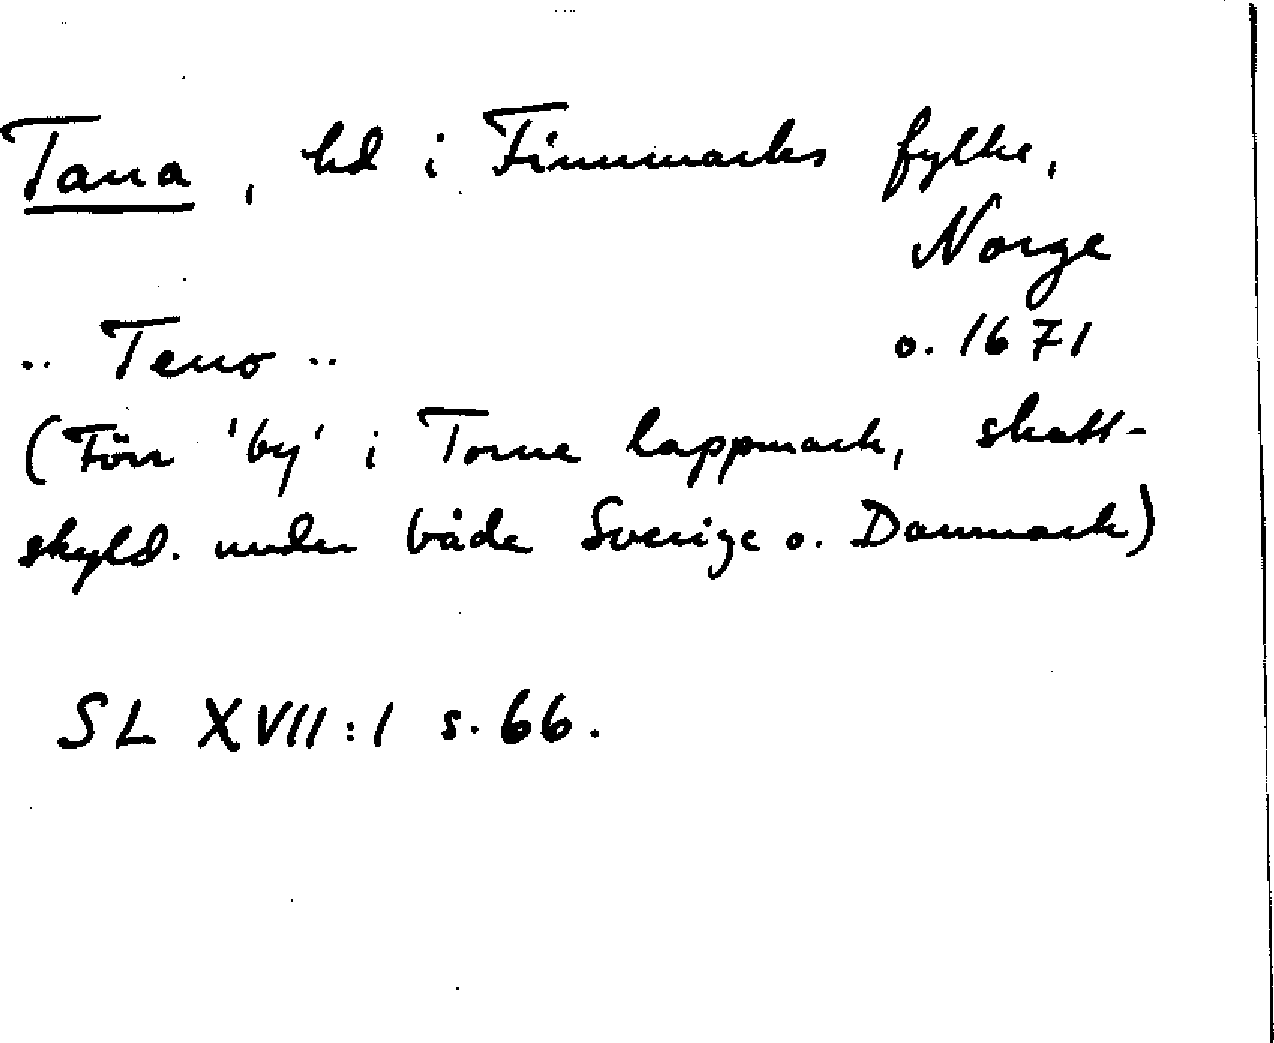 Tana, hd i Finnmarks fylke,
Norge
.. Teno .. o. 1671
(Förr 'by' i Torne lappmark, skatt-
skyld. under både Sverige o. Danmark)
SL XVII:1 s. 66.